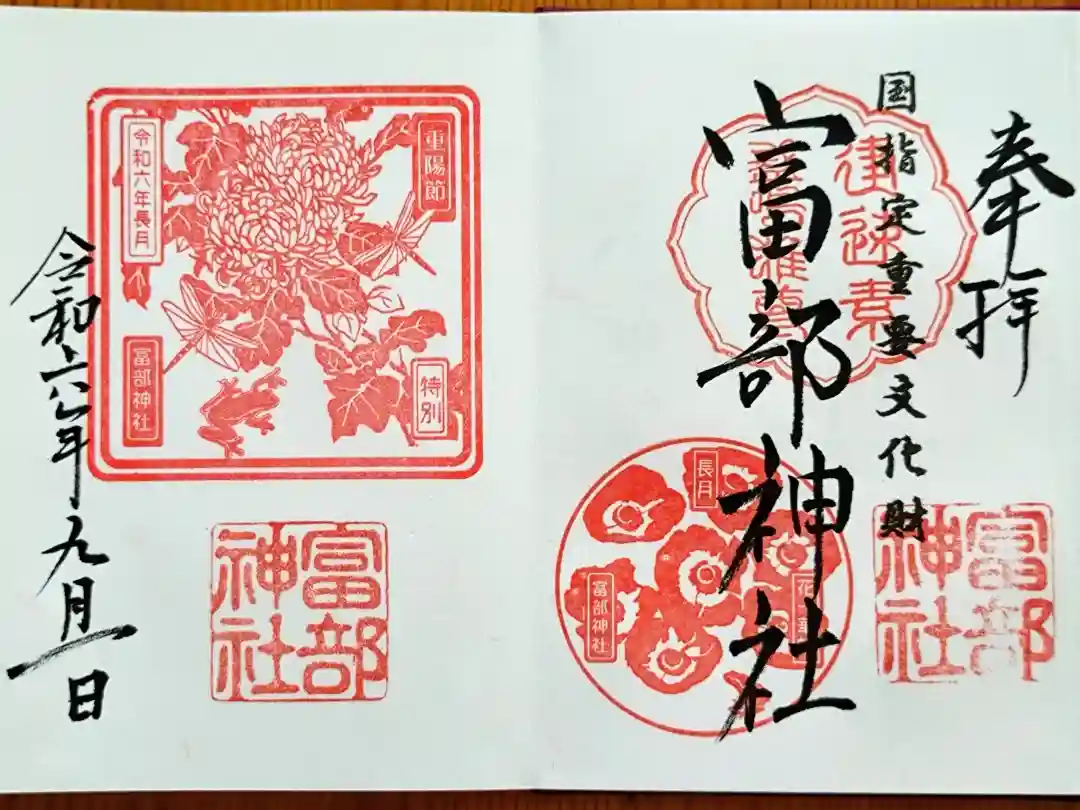 奉拝
国指定重要文化財
御速素
富部神社
長月
富部神社
富部
神社
重陽節
特別
令和六年長月
富部神社
富部
神社
令和六年九月一日